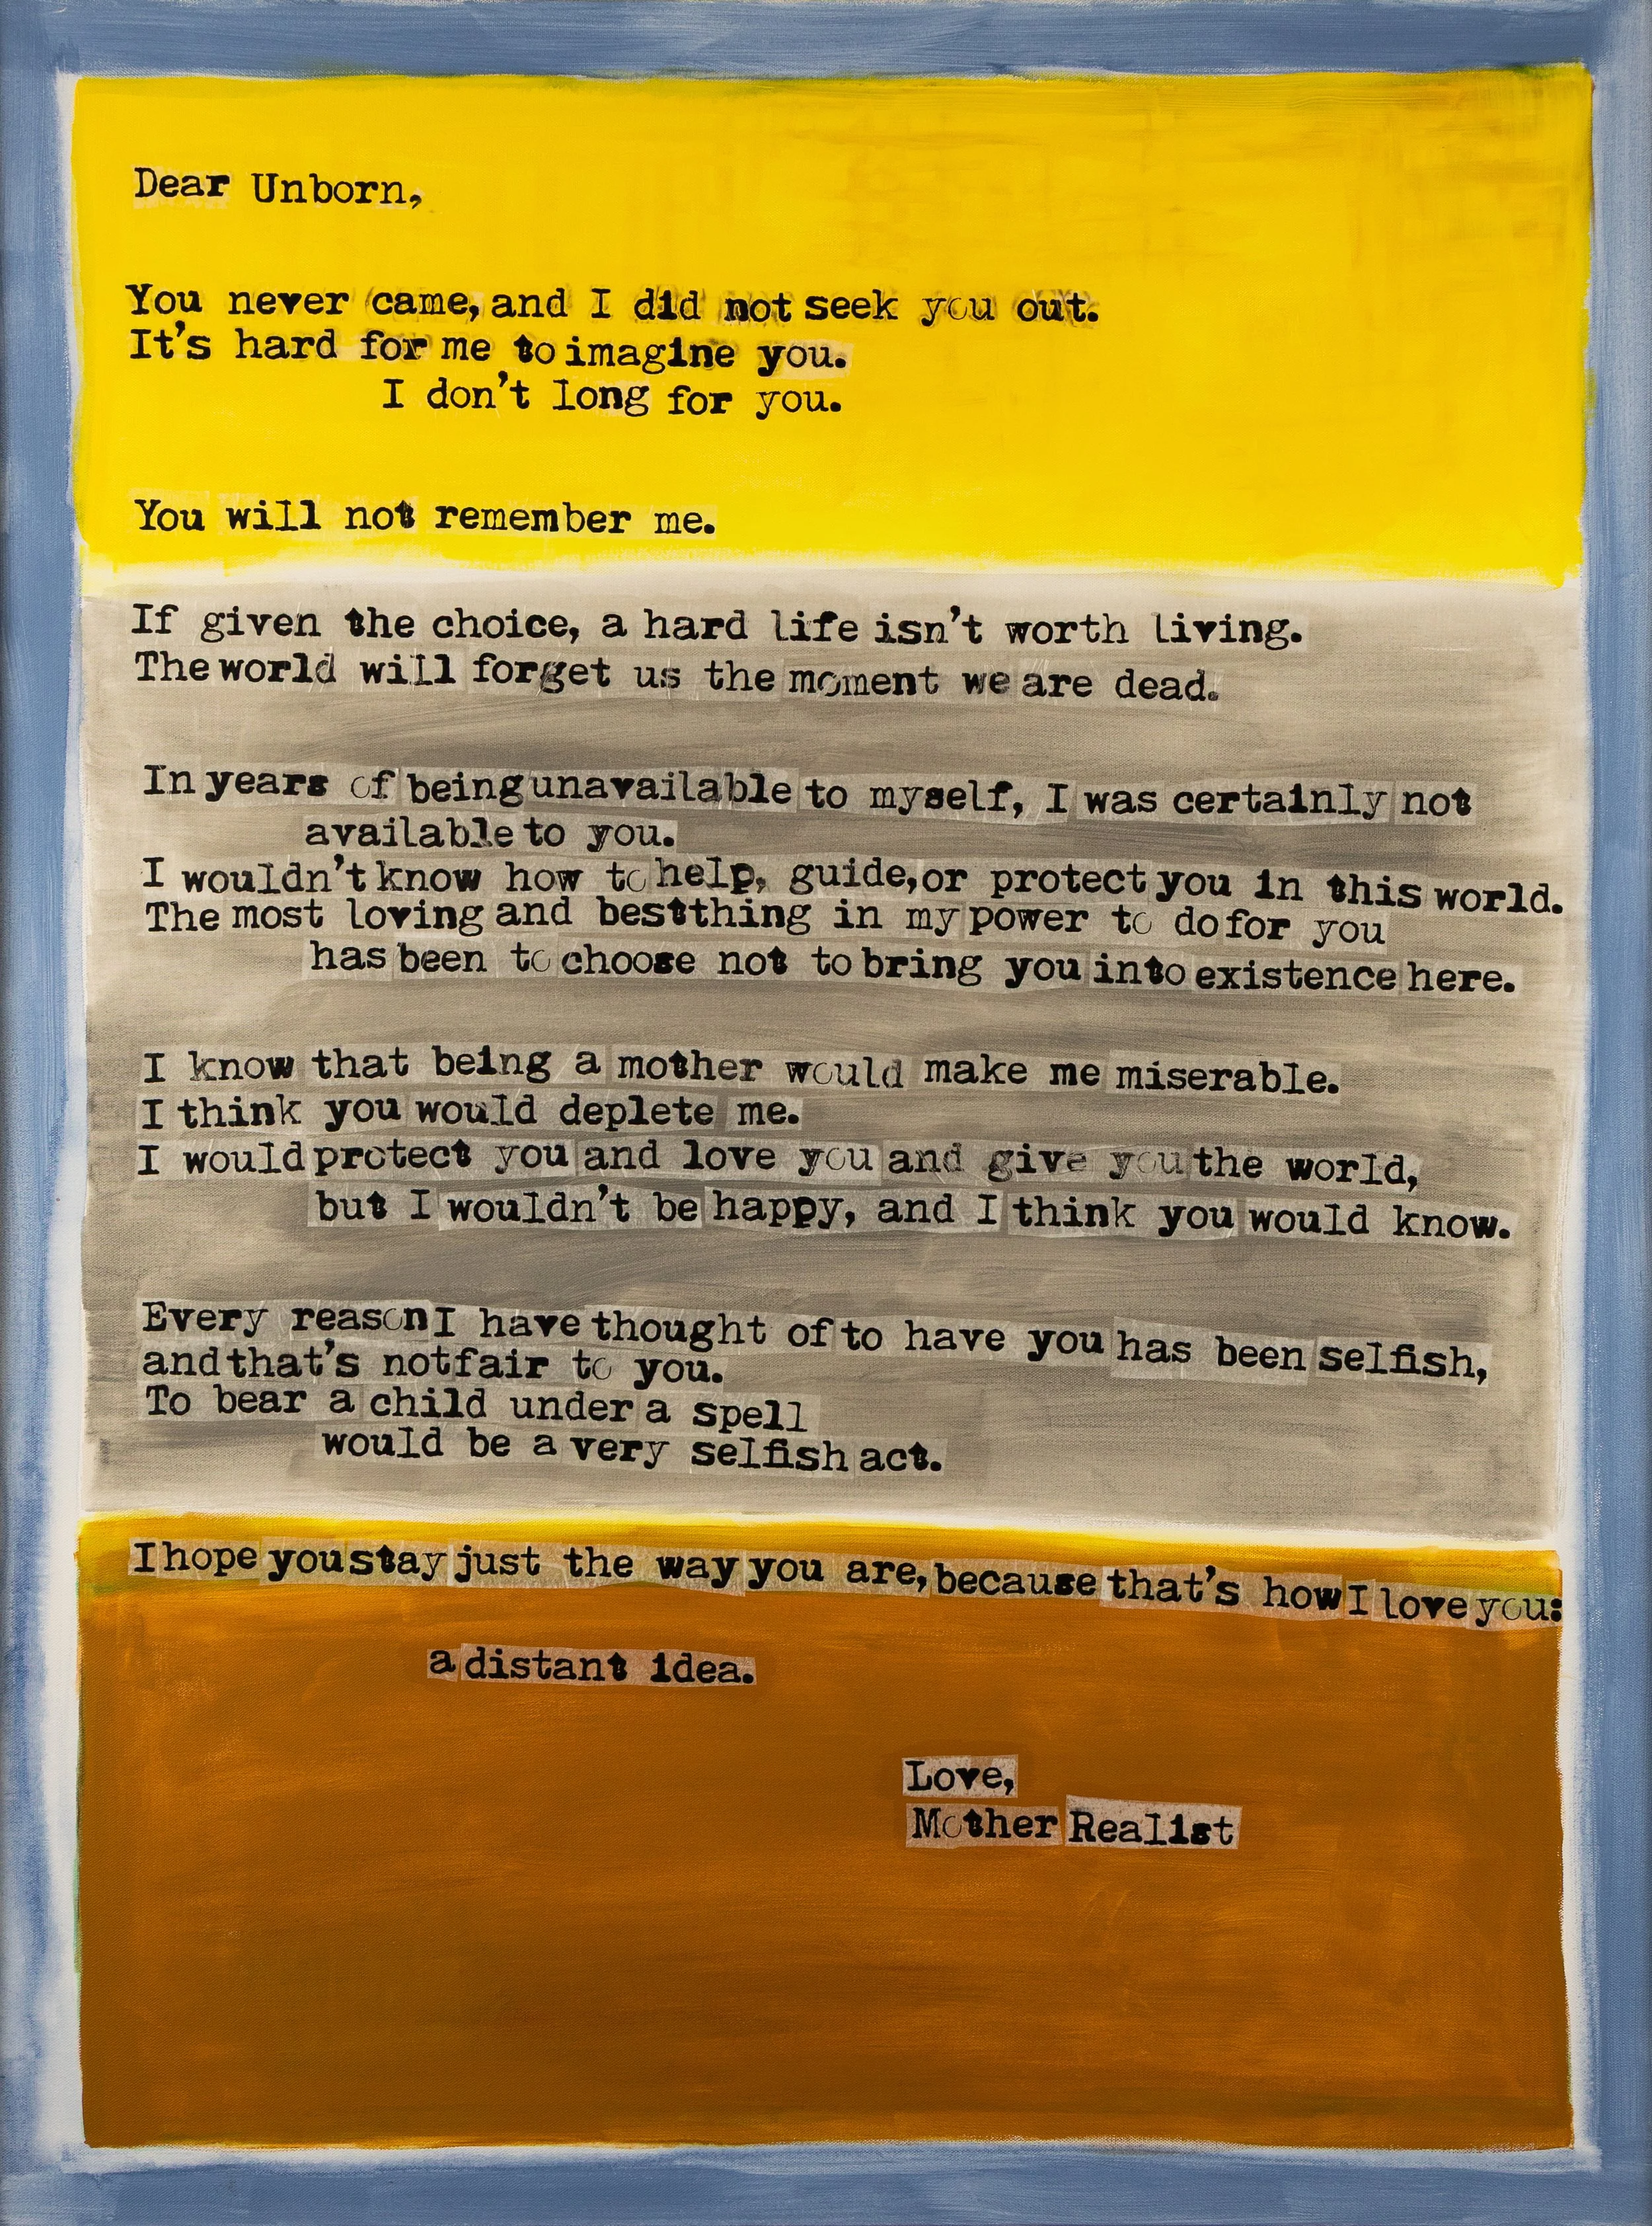 Dear Unborn,
You never came, and I did not seek you out.
It's hard for me to imagine you.
I don't long for you.
You will not remember me.
If given the choice, a hard life isn't worth living.
The world will forget us the moment we are dead.
In years of being unavailable to myself, I was certainly not
available to you.
I wouldn't know how to help, guide, or protect you in this world.
The most loving and best thing in my power to do for you
has been to choose not to bring you into existence here.
I know that being a mother would make me miserable.
I think you would deplete me.
I would protect you and love you and give you the world,
but I wouldn't be happy, and I think you would know.
Every reason I have thought of to have you has been selfish,
and that's not fair to you.
To bear a child under a spell
would be a very selfish act.
I hope you stay just the way you are, because that's how I love you:
a distant idea.
Love,
Mother Realist